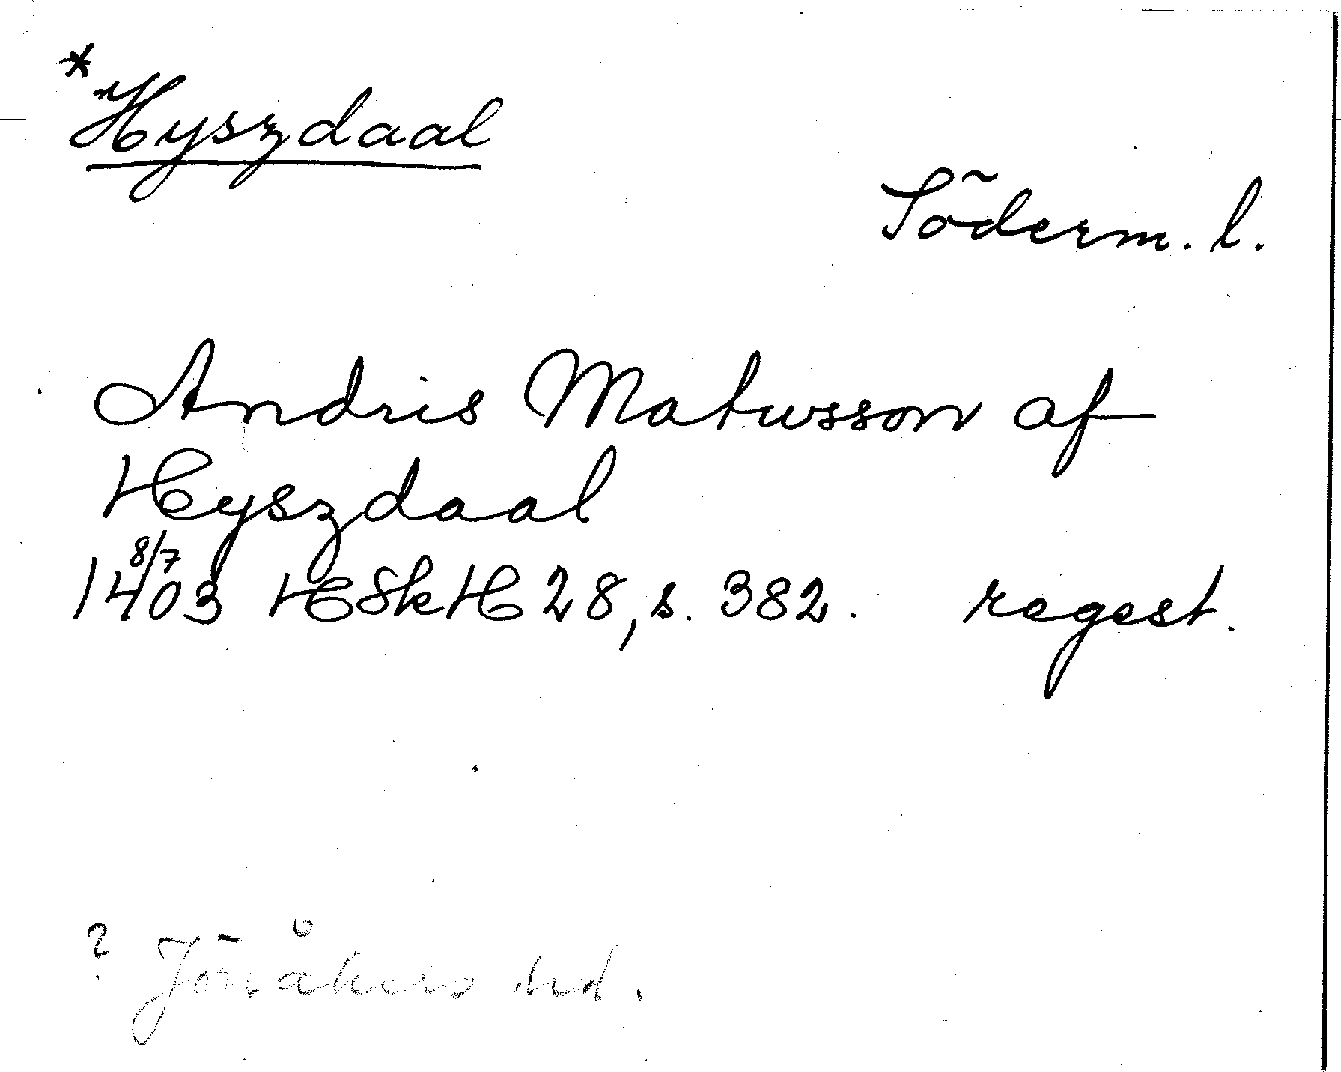 *Hyszdaal
Söderm. l.
Andris Matusson af
Hyszdaal
1403 8/7 HSkH 28, s. 382. regest.
? Jönåkers hd.